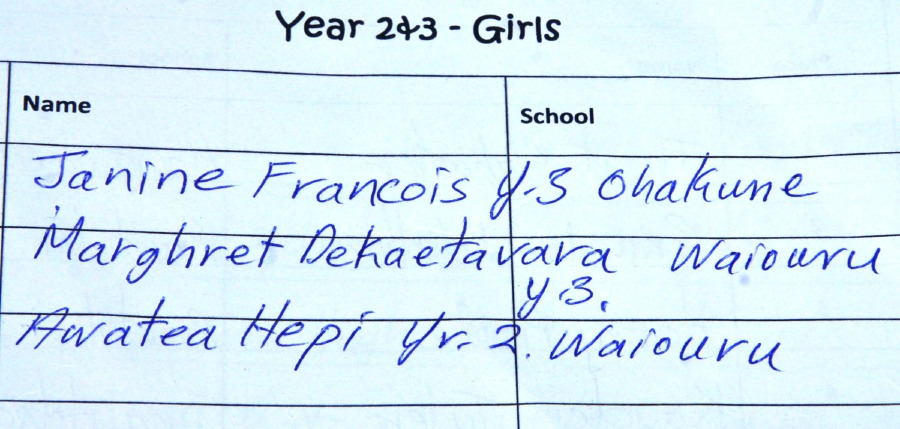 Year 2&3 - Girls
Name School
Janine Francois y.3 Ohakune
Marghret Dekaetavara Waiouru
y 3.
Awatea Hepi Yr. 2. Waiouru